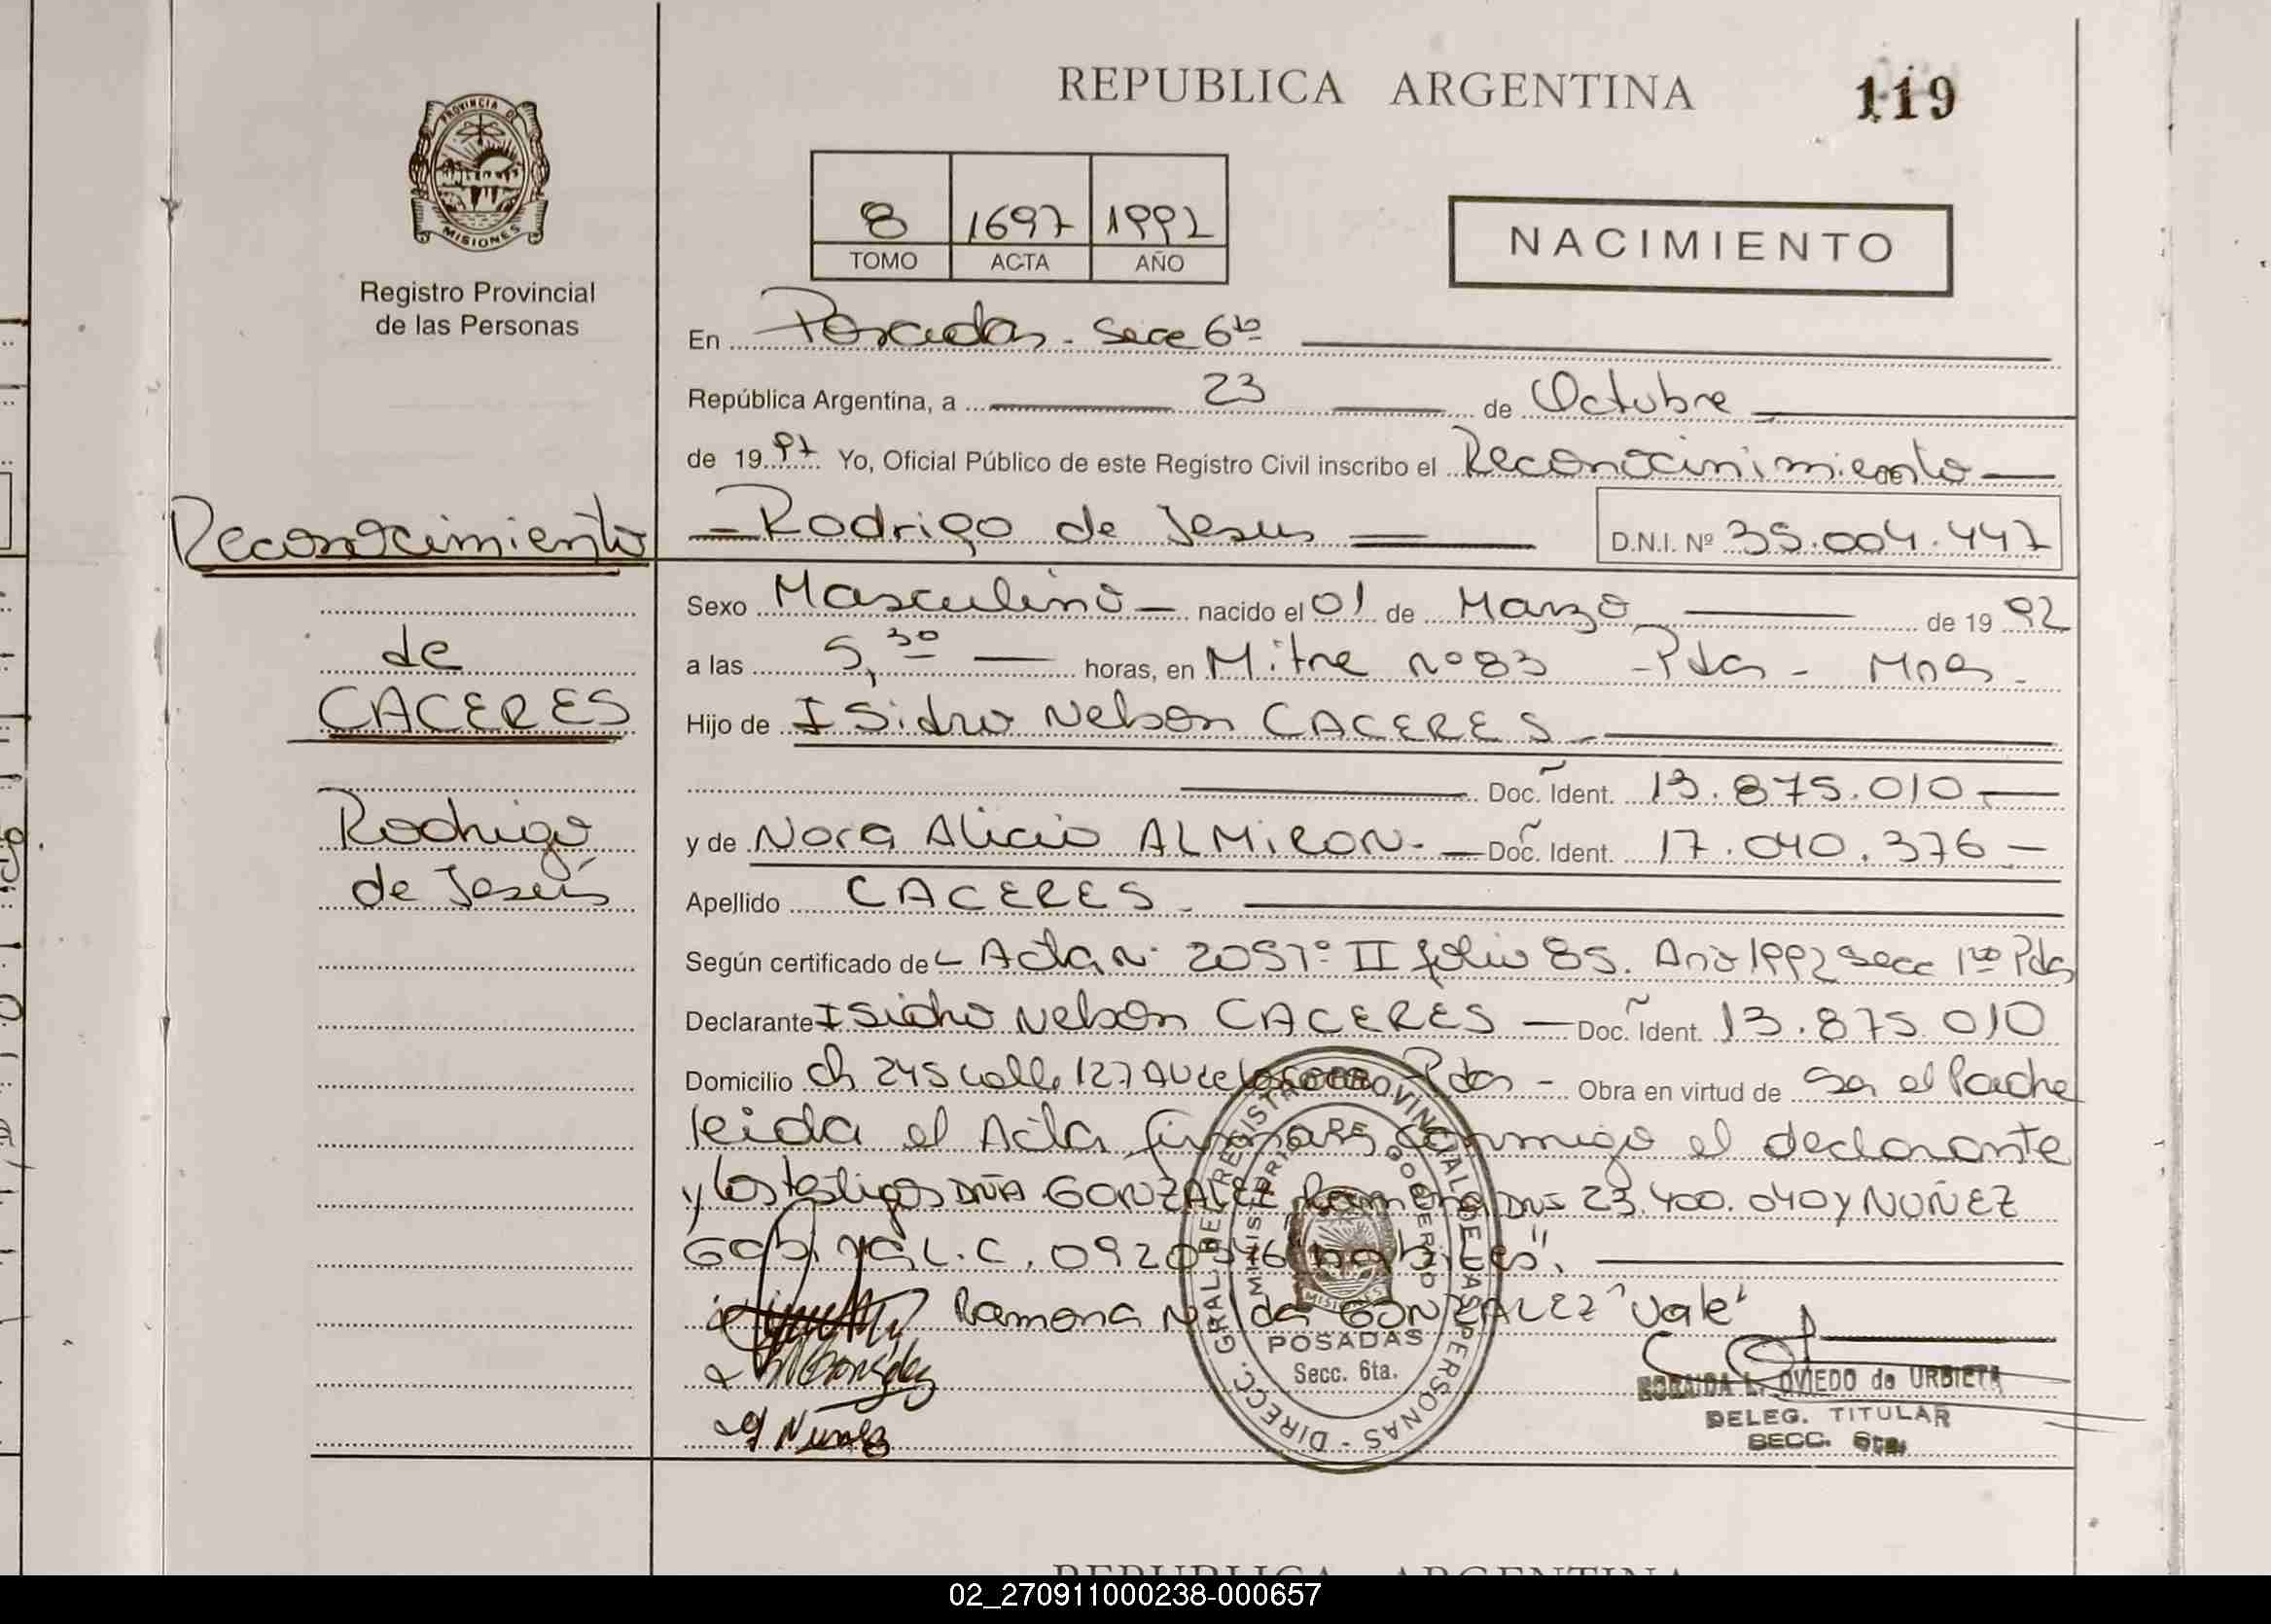 REPUBLICA ARGENTINA
119
PROVINCIA DE
MISIONES
Registro Provincial
de las Personas
8 1697 1992
TOMO ACTA AÑO
NACIMIENTO
En Posadas - Secc 6ta
República Argentina, a 23 de Octubre
de 1997 Yo, Oficial Público de este Registro Civil inscribo el Reconocinimiento
de
Reconocimiento
Rodrigo de Jesus
D.N.I. Nº 35.004.447
Sexo Masculino nacido el 01 de Marzo de 1992
de
a las 5,30 horas, en Mitre nº 83 - Pdas - Mnes -
CACERES
Hijo de Isidro Nelson CACERES
Doc. Ident. 13.875.010
Rodrigo
y de Nora Alicia ALMIRON. Doc. Ident. 17.040.376
de Jesús
Apellido CACERES
Según certificado de Acta Nº 2051º II folio 85. Año 1992 Secc 1ra Pdas
Declarante Isidro Nelson CACERES Doc. Ident. 13.875.010
Domicilio ch 245 calle 127 Pdas - Obra en virtud de Ser el Padre
leida el Acta firman conmigo el declarante
y los testigos DÑA GONZALEZ Ramona DNI 23.400.040 y NUÑEZ
L.C. "habiles".
Ramona Nilda GONZALEZ "Vale"
DIRECC. GRAL. DEL REGISTRO PROVINCIAL DE LAS PERSONAS
MINISTERIO DE GOBIERNO
MISIONES
POSADAS
Secc. 6ta.
Nuñez
ZORAIDA L. OVIEDO de URBIETA
DELEG. TITULAR
SECC. 6ta.
REPUBLICA ARGENTINA
02_270911000238-000657